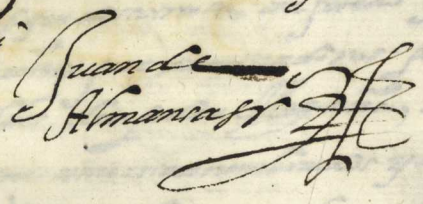 Juan de
Almansa sr